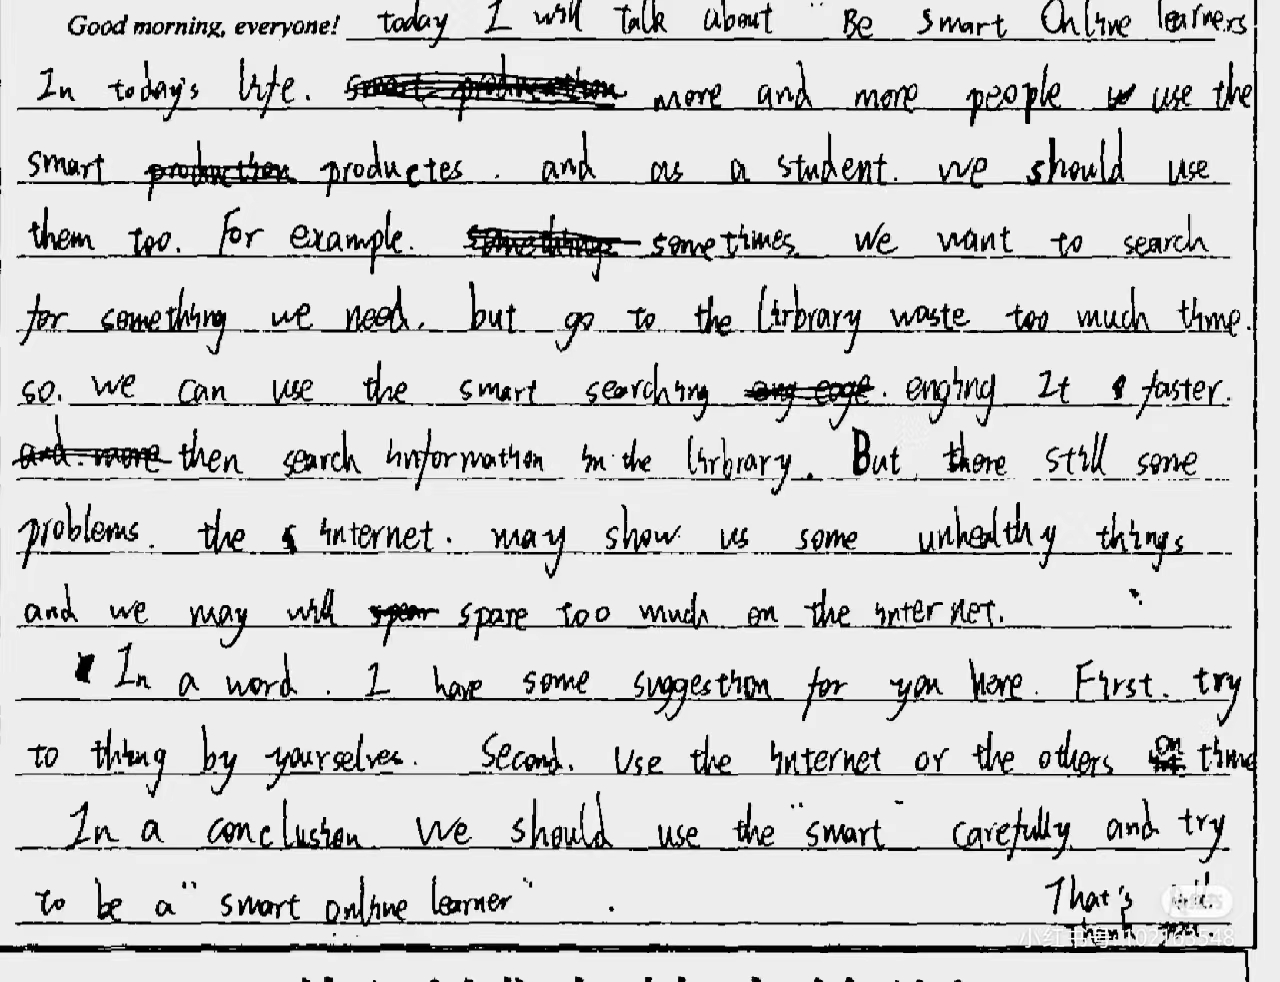 Good morning, everyone! today I will talk about "Be smart Online learners
In today's life. more and more people use the
smart productes. and as a student. we should use
them too. For example. sometimes. we want to search
for something we need. but go to the lirbrary waste too much time.
so. we can use the smart searching enging It faster.
then search information in the lirbrary. But there still some
problems. the internet. may show us some unhealthy things
and we may will spare too much on the internet.
In a word. I have some suggestion for you here. First. try
to thing by yourselves. Second. Use the internet or the others on time
In a conclusion we should use the "smart" carefully and try
to be a "smart online learner".
That's
thank you.